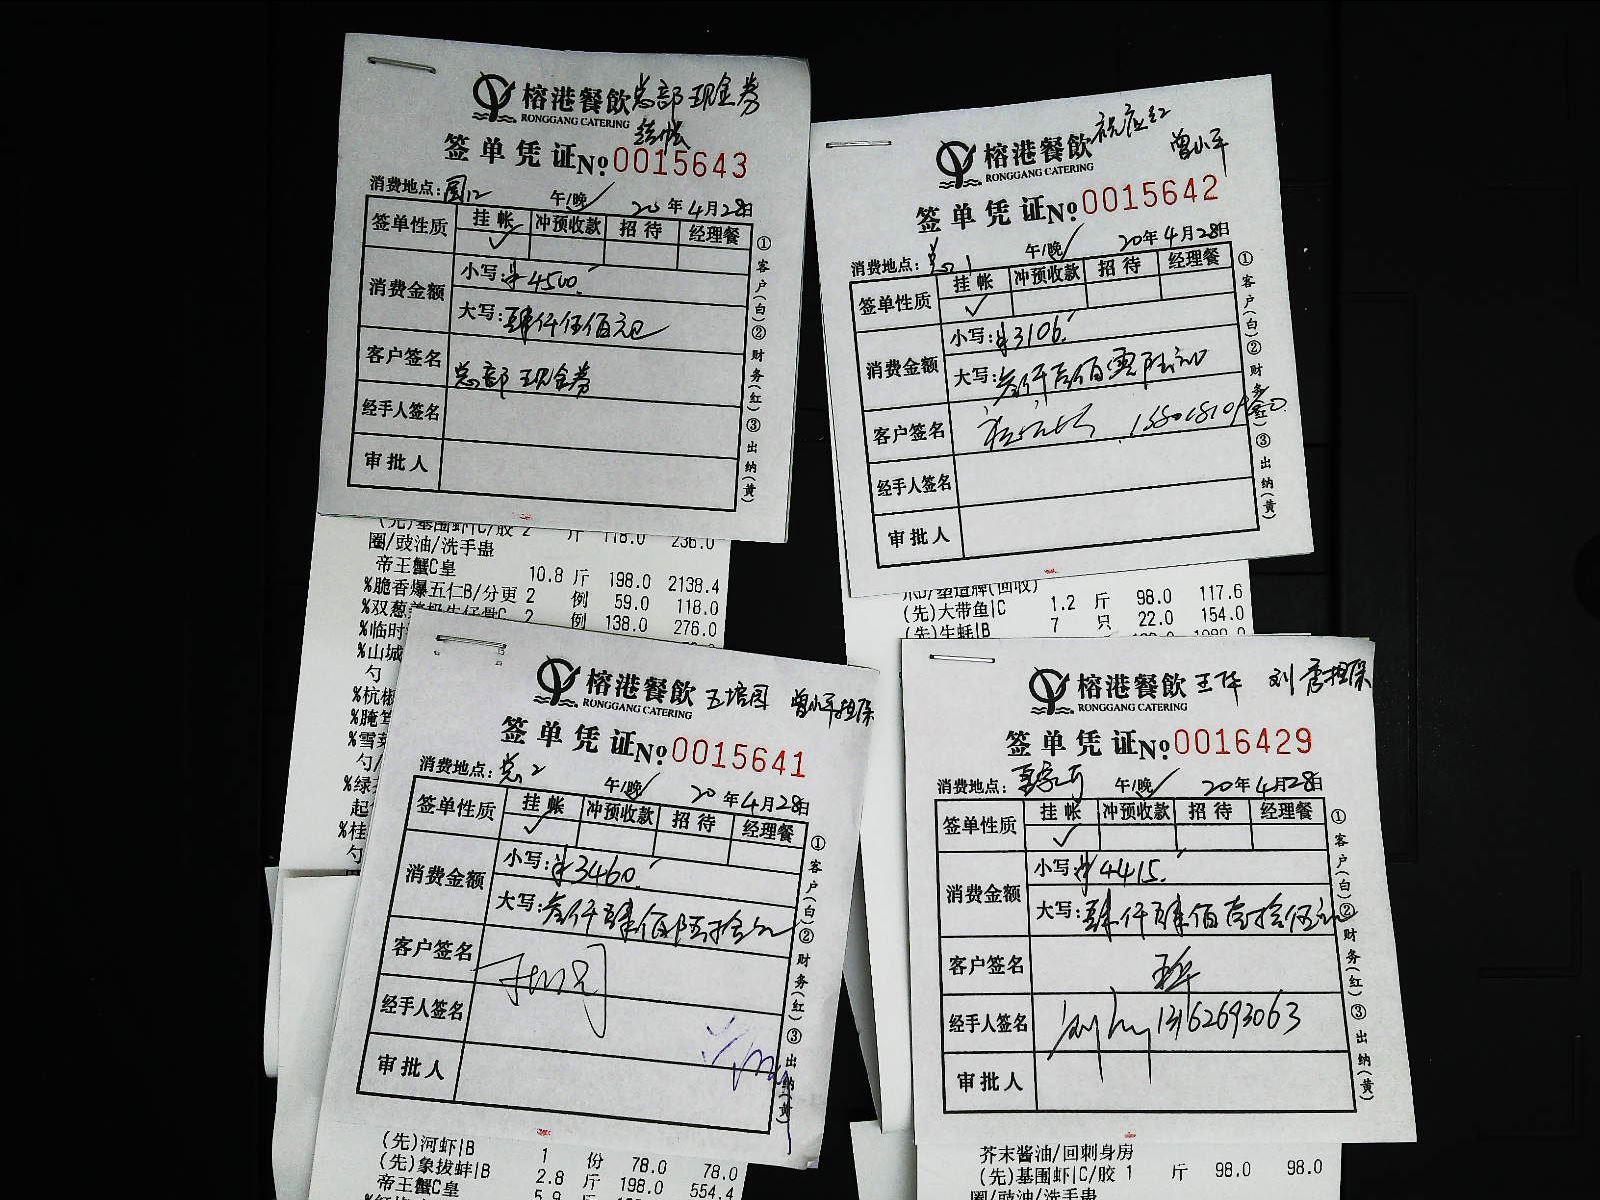 榕港餐飲 总部 现金券
RONGGANG CATERING
结帐
签单凭证 No 0015643
消费地点: 园12 午/晚 20年4月28日
签单性质 挂帐 冲预收款 招待 经理餐
✓
消费金额 小写: ¥4500.
大写: 肆仟伍佰元
客户签名 总部 现金券
经手人签名
审批人
①客户(白)②财务(红)③出纳(黄)
(先)基围虾|C/胶 2 斤 118.0 236.0
圈/豉油/洗手盅
帝王蟹C皇 10.8 斤 198.0 2138.4
%脆香爆五仁B/分更 2 例 59.0 118.0
%双葱 2 例 138.0 276.0
%临时
%山城
勺
%杭椒
%腌笃
%雪菜
勺/
%绿
起
%桂
勺
榕港餐飲 祝应红
RONGGANG CATERING 曾小平
签单凭证 No 0015642
消费地点: 午/晚 20年4月28日
签单性质 挂帐 冲预收款 招待 经理餐
✓
消费金额 小写: ¥3106.
大写: 叁仟壹佰零陆元
客户签名
经手人签名
审批人
①客户(白)②财务(红)③出纳(黄)
爪D/塑造牌(回收)
(先)大带鱼|C 1.2 斤 98.0 117.6
(先)生蚝|B 7 只 22.0 154.0
榕港餐飲 王培园 曾小平担保
RONGGANG CATERING
签单凭证 No 0015641
消费地点: 总2 午/晚 20年4月28日
签单性质 挂帐 冲预收款 招待 经理餐
✓
消费金额 小写: ¥3460.
大写: 叁仟肆佰陆拾元
客户签名
经手人签名
审批人
①客户(白)②财务(红)③出纳(黄)
(先)河虾|B 1 份 78.0 78.0
(先)象拔蚌|B 2.8 斤 198.0 554.4
帝王蟹C皇 5.9 斤
榕港餐飲 王华 刘秀担保
RONGGANG CATERING
签单凭证 No 0016429
消费地点: 午/晚 20年4月28日
签单性质 挂帐 冲预收款 招待 经理餐
✓
消费金额 小写: ¥4415.
大写: 肆仟肆佰壹拾伍元
客户签名 王华
经手人签名 13162693063
审批人
①客户(白)②财务(红)③出纳(黄)
芥末酱油/回刺身房
(先)基围虾|C/胶 1 斤 98.0 98.0
圈/豉油/洗手盅